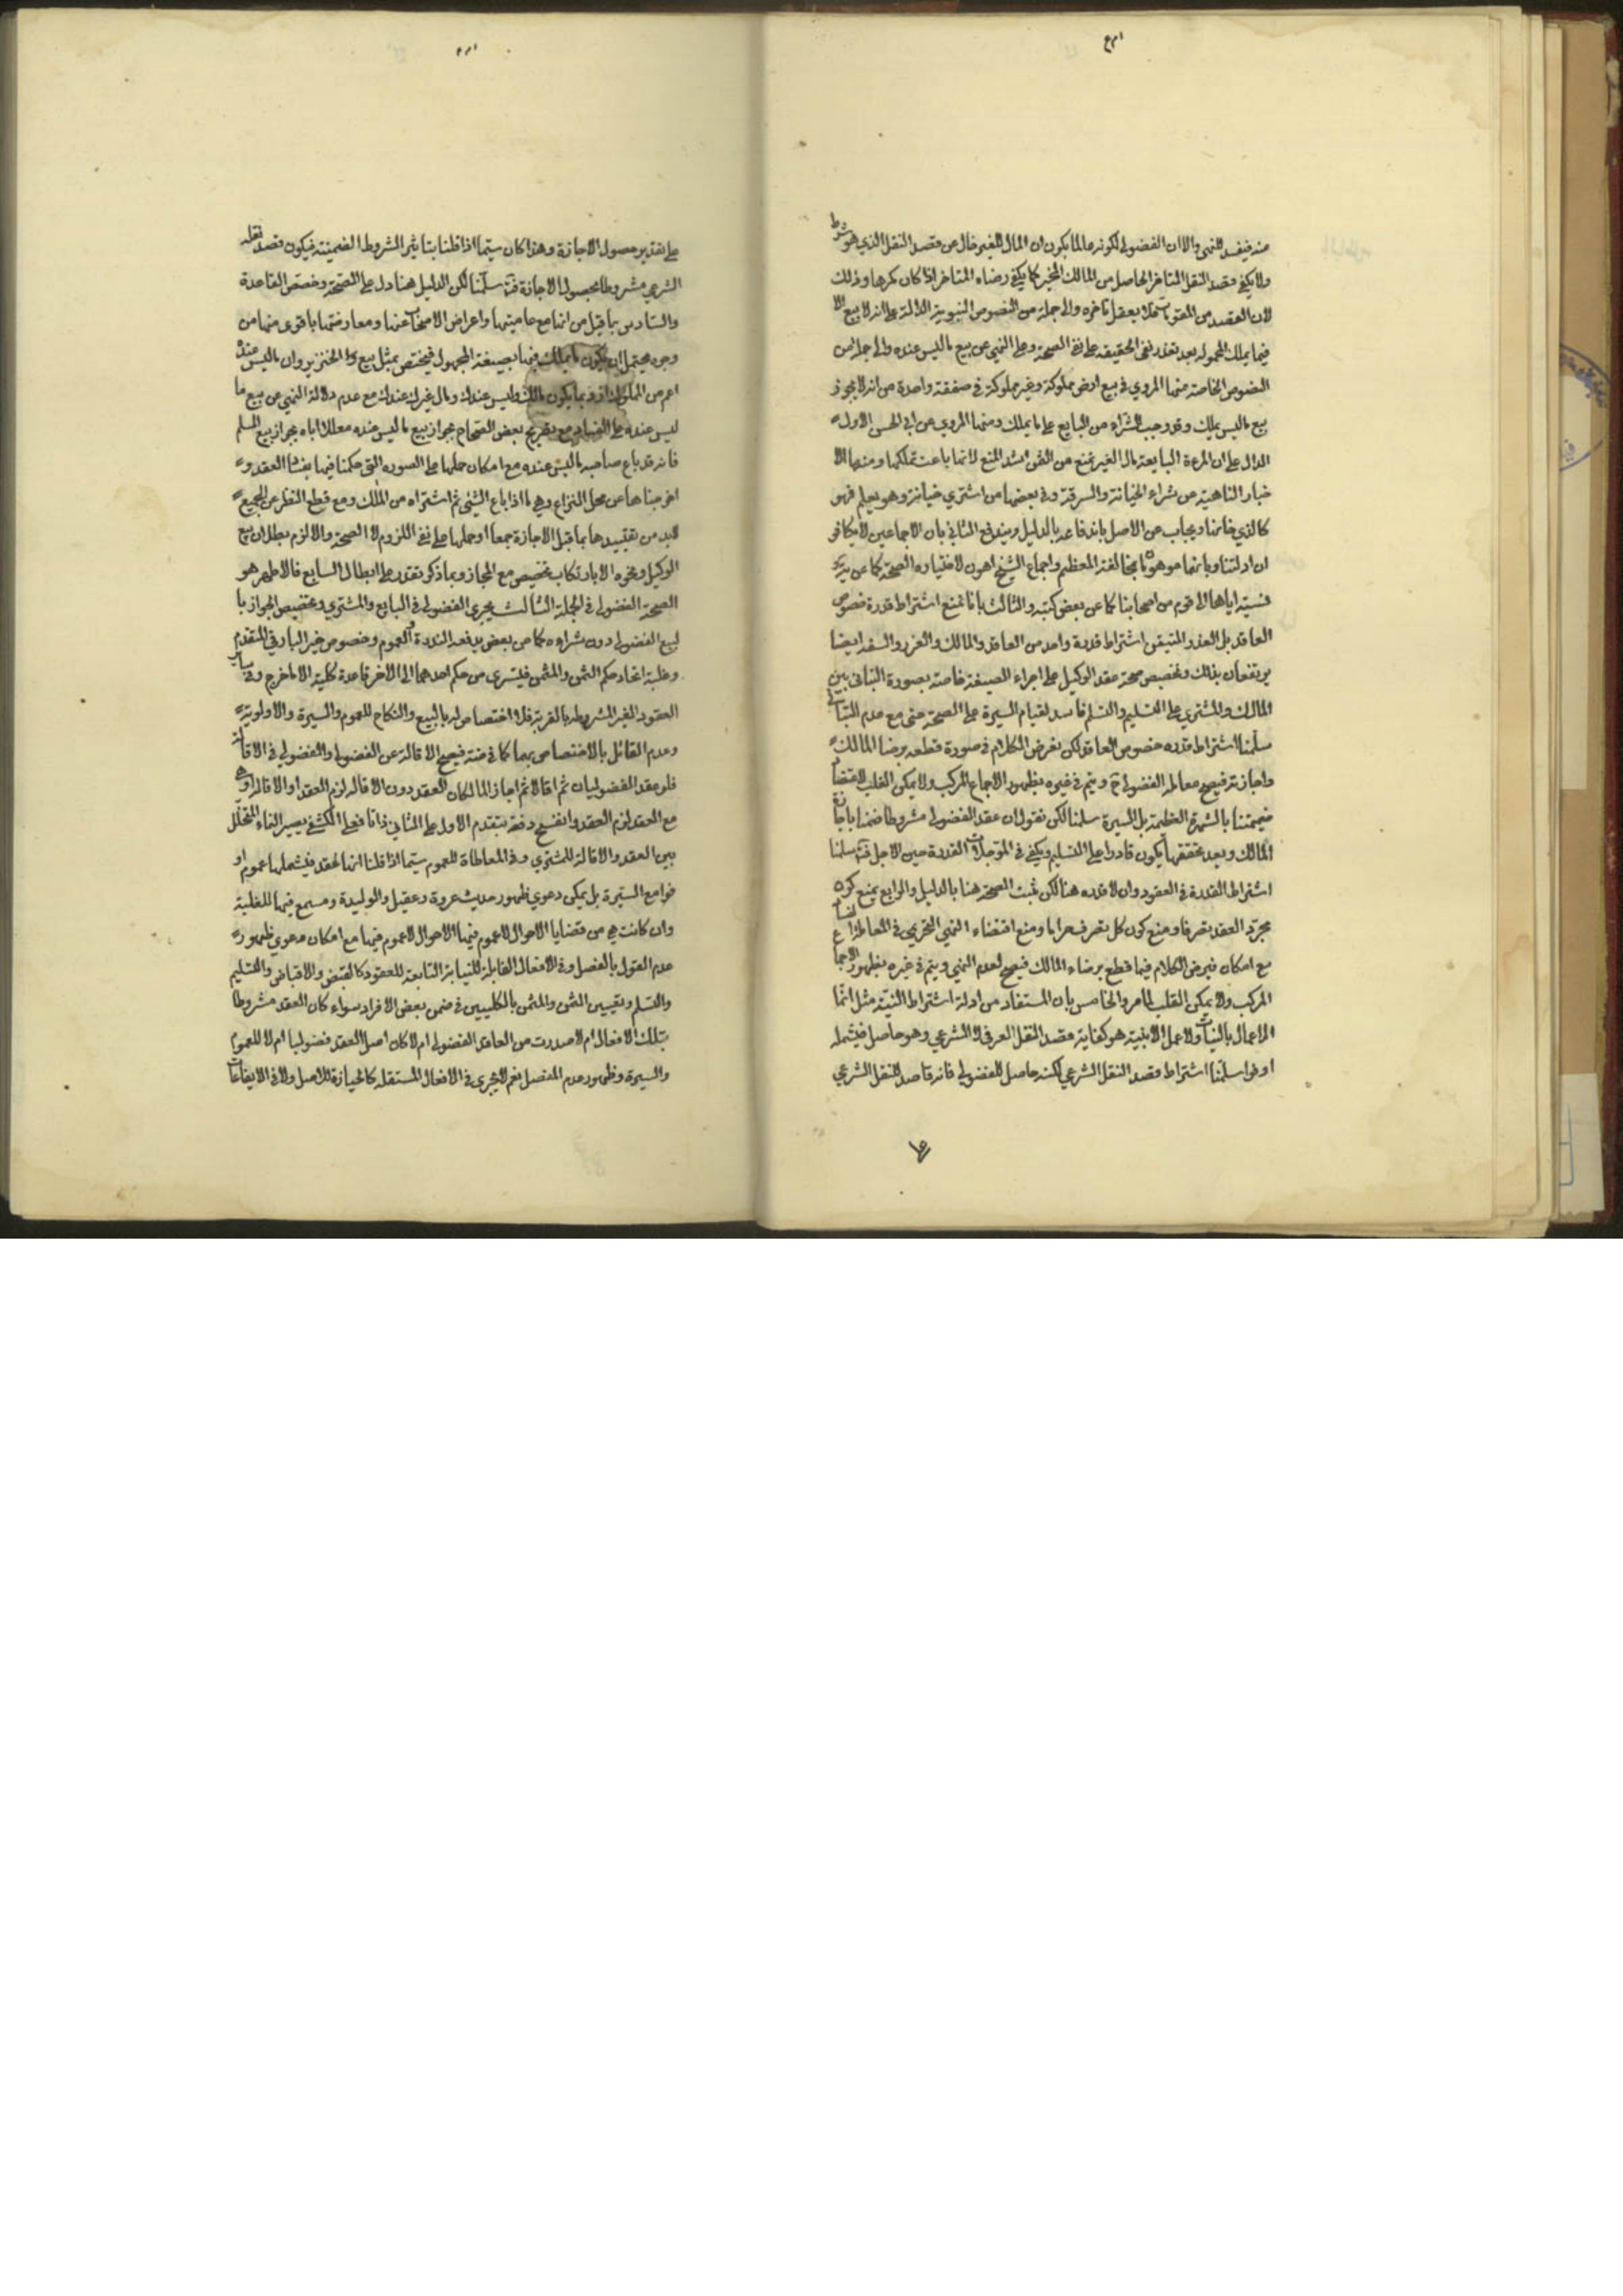 منه فيفسد للنهي والا ان الفضولي لكونه عالما بكون ان المال للغير خال عن قصد النقل الذي هو شرط
ولا يكفي قصد النقل المتاخر الحاصل من المالك المجيز كما يكفي رضاه المتاخر اذا كان مكرها وذلك
لان القصد من المقومات فلا يعقل تاخره والى جملة من النصوص النبوية الدالة على انه لا بيع الا
فيما يملك المحمولة بعد تعذر نفي الحقيقة على نفي الصحة وعلى النهي عن بيع ما ليس عنده والى جملة من
النصوص الخاصة منها المروي في بيع ارض مملوكة وغير مملوكة في صفقة واحدة من انه لا يجوز
بيع ما ليس يملك وقد وجب الشراء من البايع على ما يملك ومنها المروي عن ابي الحسن الاول
الدال على ان المرءة البايعة مال الغير تمنع من الثمن اشد المنع لانها باعت ما تملكها ومنها الا
خبار الناهية عن شراء الخيانة والسرقة وفي بعضها من اشترى خيانة وهو يعلم فهو
كالذي خانها ويجاب عن الاصل باندفاعه بالدليل ويندفع الثاني بان الاجماعين لا يكافؤ
ان ادلتنا وبانهما موهونان بمخالفة المعظم واجماع الشيخ اهون لاختياره الصحة كما عن
نسبته اياها الى قوم من اصحابنا كما عن بعض كتبه والثالث بانا نمنع اشتراط قدرة خصوص
العاقد بل القدر المتيقن اشتراط قدرة واحد من العاقد والمالك والغرر والسفه ايضا
يرتفعان بذلك وتخصيص صحة عقد الوكيل على اجراء الصيغة خاصة بصورة التباني بين
المالك والمشتري على التسليم والتسلم فاسد لقيام السيرة على الصحة حتى مع عدم التباني
سلمنا اشتراط قدرة خصوص العاقد لكن نفرض الكلام في صورة قطعه برضا المالك
واجازته فيصح معاملة الفضولي ح ويتم في غيره بظهور الاجماع المركب ولا يمكن القلب
ضميمتنا بالشهرة العظيمة بل السيرة سلمنا لكن نقول ان عقد الفضولي مشروط ضمنا باجازة
المالك وبعد تحققها يكون قادرا على التسليم ويكفي في المؤجلات القدرة حين الاجل سلمنا
اشتراط القدرة في العقود وان لا قدرة هنا لكن ثبت الصحة هنا بالدليل والرابع بمنع كون
مجرد العقد تصرفا ومنع كون كل تصرف حراما ومنع اقتضاء النهي التحريمي في المعاملة الفساد
مع امكان فرض الكلام فيما قطع برضاء المالك فيصح لعدم النهي ويتم في غيره بظهور الاجماع
المركب ولا يمكن القلب لما مر والخامس بان المستفاد من ادلة اشتراط النية مثل انما
الاعمال بالنيات ولا عمل الا بنية هو كفاية قصد النقل العرفي لا الشرعي وهو حاصل فيشمله
اوفوا سلمنا اشتراط قصد النقل الشرعي لكنه حاصل للفضولي فانه قاصد للنقل الشرعي
على تقدير حصول الاجازة وهذا كان سيما اذا قلنا بتاثير الشروط الضمنية فيكون قصد نقله
الشرعي مشروطا بحصول الاجازة سلمنا لكن الدليل هنا دل على الصحة وخصص القاعدة
والسادس بما قيل من انها مع عاميتها واعراض الاصحاب عنها ومعارضتها باقوى منها من
وجوه يحتمل ان يكون ما يملك فيها بصيغة المجهول فيختص بمثل بيع الخنزير وان ما ليس عنده
اعم من المملوك اذ ربما يكون مالك وليس عندك ومال غيرك عندك مع عدم دلالة النهي عن بيع ما
ليس عنده على الفساد مع تصريح بعض الصحاح بجواز بيع ما ليس عنده معللا اياه بجواز بيع السلم
فانه قد باع صاحبه ما ليس عنده مع امكان حملها على الصورة التي حكمنا فيها بفساد العقد و
اخرجناها عن محل النزاع وهي ما اذا باع الشيء ثم اشتراه من المالك ومع قطع النظر عن الجميع
لابد من تقييدها بما قبل الاجازة جمعا او حملها على نفي اللزوم لا الصحة والا لزم بطلان بيع
الوكيل ونحوه الا بارتكاب تخصيص مع المجاز وبما ذكر تقدر على ابطال السابع فالاظهر هو
الصحة الفضولي في الجملة الثالث يجري الفضولي في البايع والمشتري وتخصيص الجواز با
لبيع الفضولي دون شراءه كما عن بعض يدفعه الندرة والعموم وخصوص خبر البارقي المتقدم
وغلبة اتحاد حكم الثمن والمثمن فليسرى من حكم احدهما الى الاخر قاعدة كلية الا ما خرج وفي ساير
العقود الغير المشروطة بالقربة فلا اختصاص له بالبيع والنكاح للعموم والسيرة والاولوية
وعدم القائل بالاختصاص بهما كما في ضنة فيصح الاقالة عن الفضولي والفضولي في الاقالة
فلو عقد الفضوليان ثم اقالا ثم اجاز المالكان العقد دون الاقالة لزم العقد او الاقالة
مع العقد لزم العقد وانفسخ دفعة بتقدم الاول على الثاني ذاتا فعلى الكشف يصير النماء المتخلل
بين العقد والاقالة للمشتري وفي المعاطاة للعموم سيما اذا قلنا انها عقد فيشملها عموم او
فوا مع السيرة بل يمكن دعوي ظهور حديث عروة وعقيل والوليدة ومسمع فيها للغلبة
وان كانت هي من قضايا الاحوال لا عموم فيها الاحوال لا عموم فيها مع امكان دعوي ظهور
عدم القول بالفصل وفي الافعال القابلة للنيابة التابعة للعقود كالقبض والاقباض والتسليم
والتسلم وتعيين الثمن والمثمن بالكليين في ضمن بعض الافراد سواء كان العقد مشروطا
بتلك الافعال ام لا صدرت من العاقد الفضولي ام لا كان اصل العقد فضوليا ام لا للعموم
والسيرة وظهور عدم المفصل نعم لا يجري في الافعال المستقلة كالحيازة للاصل ولا في الايقاعات